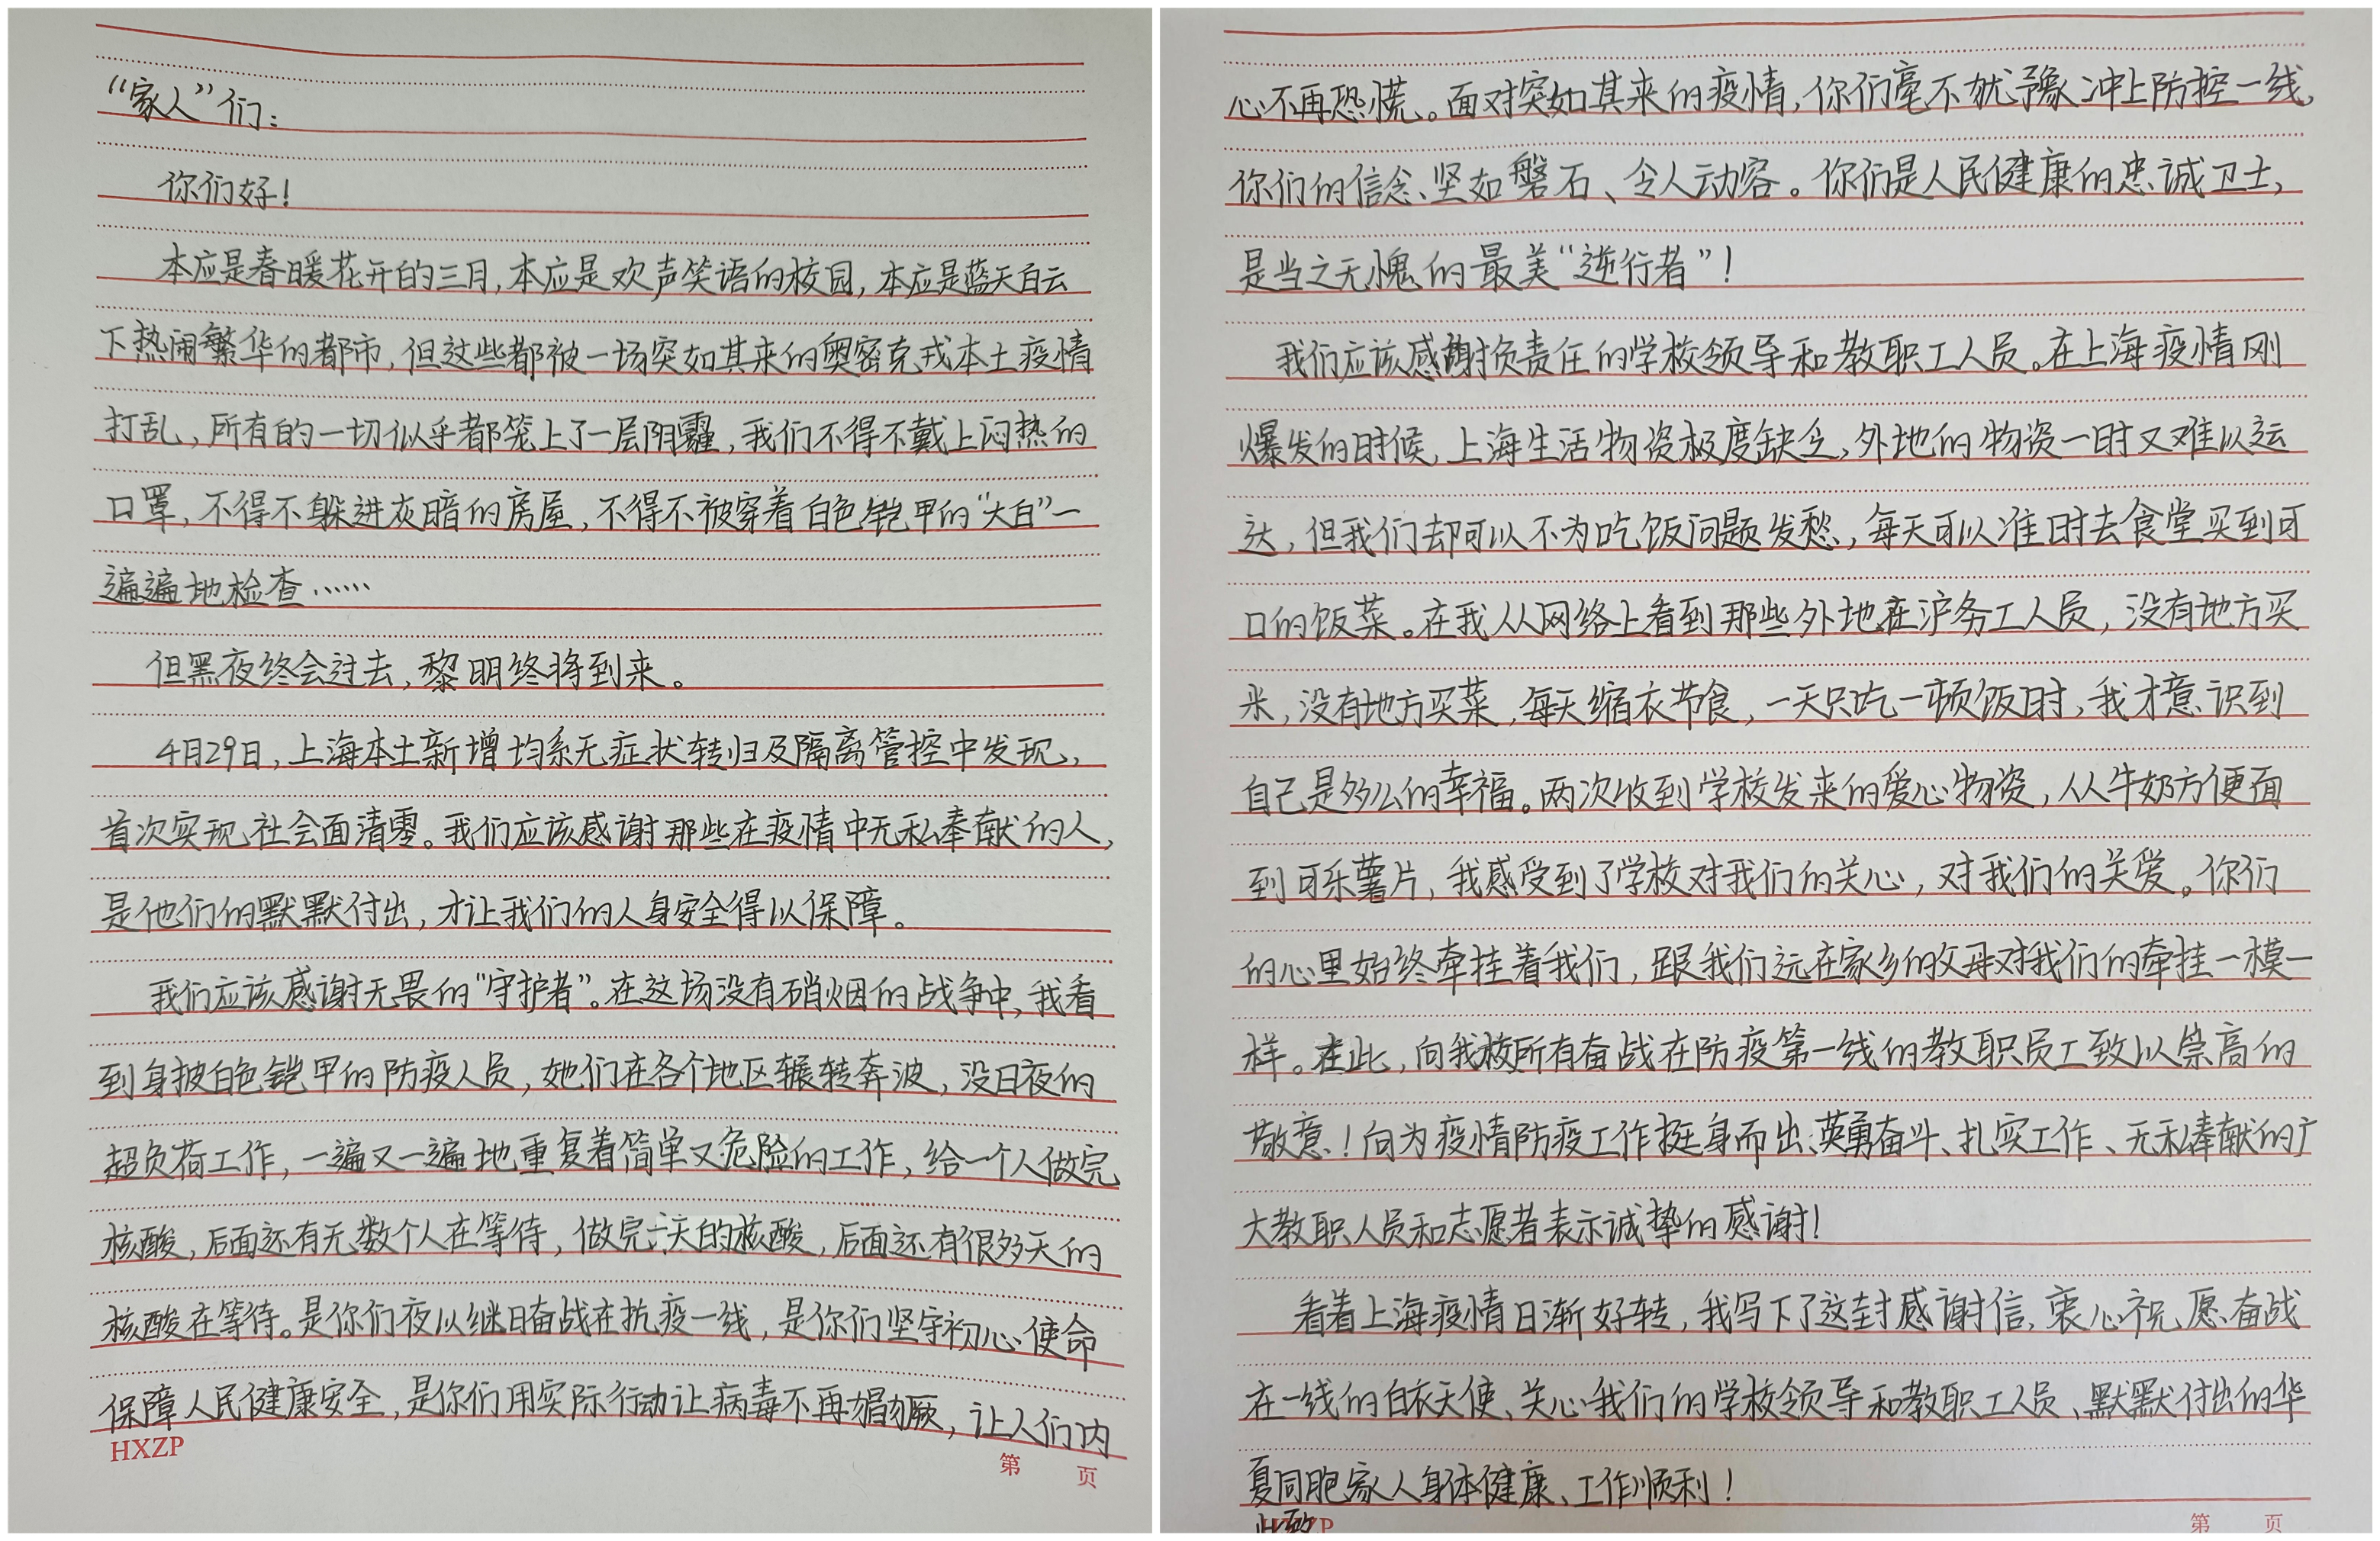 “家人”们：
你们好！
本应是春暖花开的三月，本应是欢声笑语的校园，本应是蓝天白云
下热闹繁华的都市，但这些都被一场突如其来的奥密克戎本土疫情
打乱，所有的一切似乎都笼上了一层阴霾，我们不得不戴上闷热的
口罩，不得不躲进灰暗的房屋，不得不被穿着白色铠甲的“大白”一
遍遍地检查……
但黑夜终会过去，黎明终将到来。
4月29日，上海本土新增均系无症状转归及隔离管控中发现，
首次实现社会面清零。我们应该感谢那些在疫情中无私奉献的人，
是他们的默默付出，才让我们的人身安全得以保障。
我们应该感谢无畏的“守护者”。在这场没有硝烟的战争中，我看
到身披白色铠甲的防疫人员，她们在各个地区辗转奔波，没日夜的
超负荷工作，一遍又一遍地重复着简单又危险的工作，给一个人做完
核酸，后面还有无数个人在等待，做完一天的核酸，后面还有很多天的
核酸在等待。是你们夜以继日奋战在抗疫一线，是你们坚守初心使命
保障人民健康安全，是你们用实际行动让病毒不再猖獗，让人们内
HXZP
第 页
心不再恐慌。面对突如其来的疫情，你们毫不犹豫冲上防控一线，
你们的信念、坚如磐石、令人动容。你们是人民健康的忠诚卫士，
是当之无愧的最美“逆行者”！
我们应该感谢负责任的学校领导和教职工人员。在上海疫情刚
爆发的时候，上海生活物资极度缺乏，外地的物资一时又难以运
达，但我们却可以不为吃饭问题发愁，每天可以准时去食堂买到可
口的饭菜。在我从网络上看到那些外地在沪务工人员，没有地方买
米，没有地方买菜，每天缩衣节食，一天只吃一顿饭时，我才意识到
自己是多么的幸福。两次收到学校发来的爱心物资，从牛奶方便面
到可乐薯片，我感受到了学校对我们的关心，对我们的关爱。你们
的心里始终牵挂着我们，跟我们远在家乡的父母对我们的牵挂一模一
样。在此，向我校所有奋战在防疫第一线的教职员工致以崇高的
敬意！向为疫情防疫工作挺身而出、英勇奋斗、扎实工作、无私奉献的广
大教职人员和志愿者表示诚挚的感谢！
看着上海疫情日渐好转，我写下了这封感谢信，衷心祝愿奋战
在一线的白衣天使、关心我们的学校领导和教职工人员、默默付出的华
夏同胞家人身体健康、工作顺利！
此致
第 页